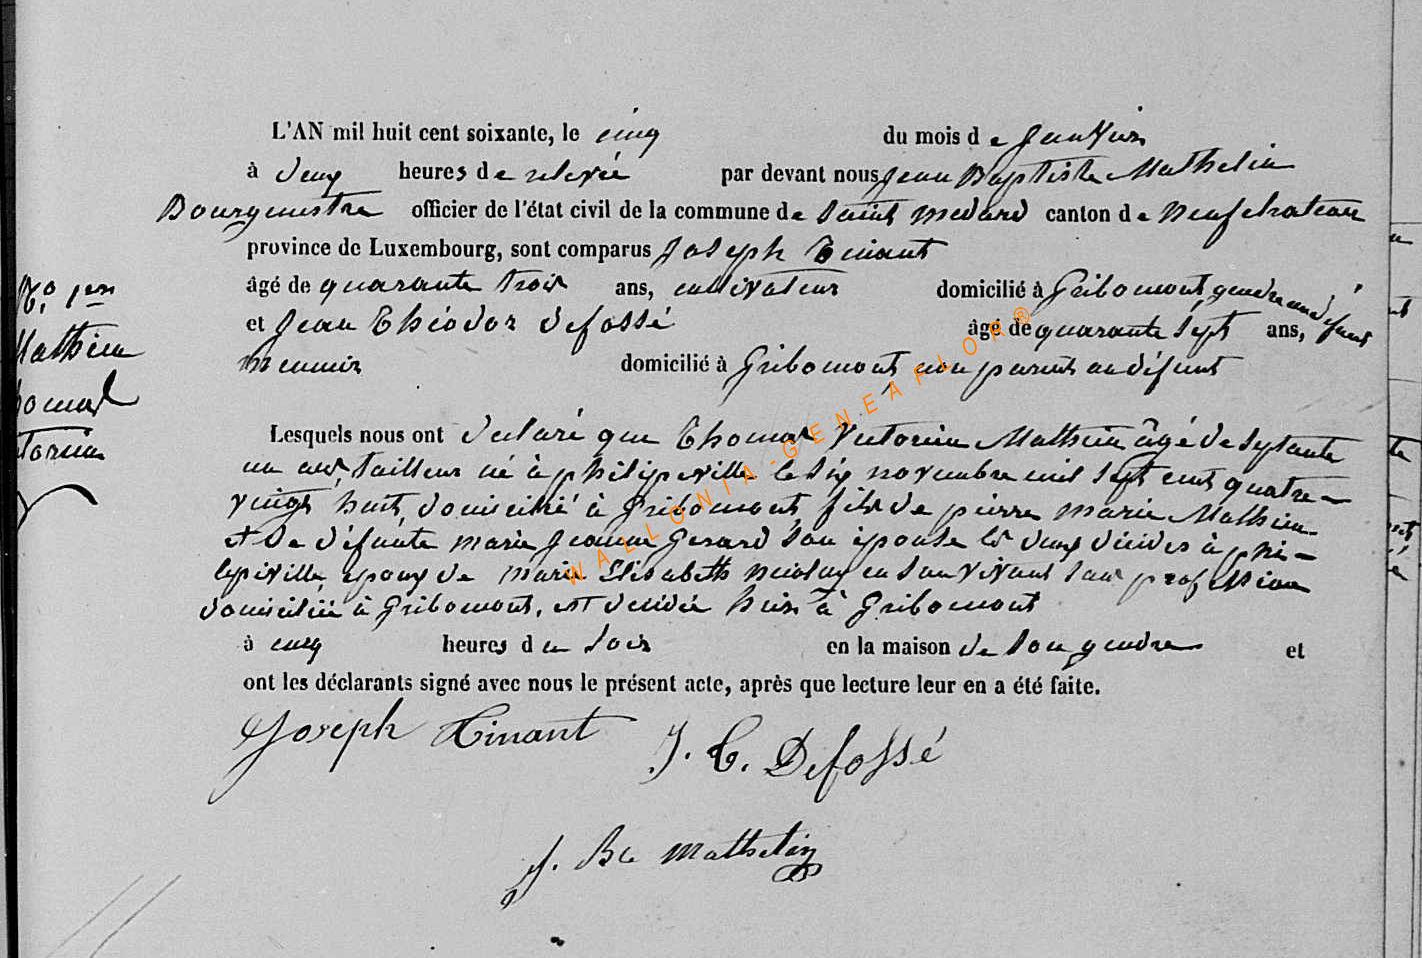 L'AN mil huit cent soixante, le cinq du mois de Janvier
à deux heures de relevée par devant nous Jean Baptiste Mathelin
Bourgmestre officier de l'état civil de la commune de Saint Medard canton de Neufchateau
province de Luxembourg, sont comparus Joseph Tinant
âgé de quarante trois ans, cultivateur domicilié à Gribomont, gendre au défunt
et Jean Théodor Defossé âgé de quarante sept ans,
meunier domicilié à Gribomont non parent au défunt
N.° 1er
Mathieu
Thomas
Victorien
Lesquels nous ont déclaré que Thomas Victorien Mathieu âgé de septante
un ans, tailleur né à philipeville le six novembre mil sept cent quatre-
vingt huit, domicilié à Gribomont, fils de pierre marie Mathieu
et de défunte marie Jeanne Gerard son épouse les deux décédés à phi-
lipeville époux de marie Elisabeth Nicolay en son vivant sans profession
domiciliée à Gribomont, est décédé hier à Gribomont
à cinq heures du soir en la maison de son gendre et
ont les déclarants signé avec nous le présent acte, après que lecture leur en a été faite.
Joseph Tinant J. T. Defossé
J. Bte Mathelin
WALLONIA-GENEAFLOR®